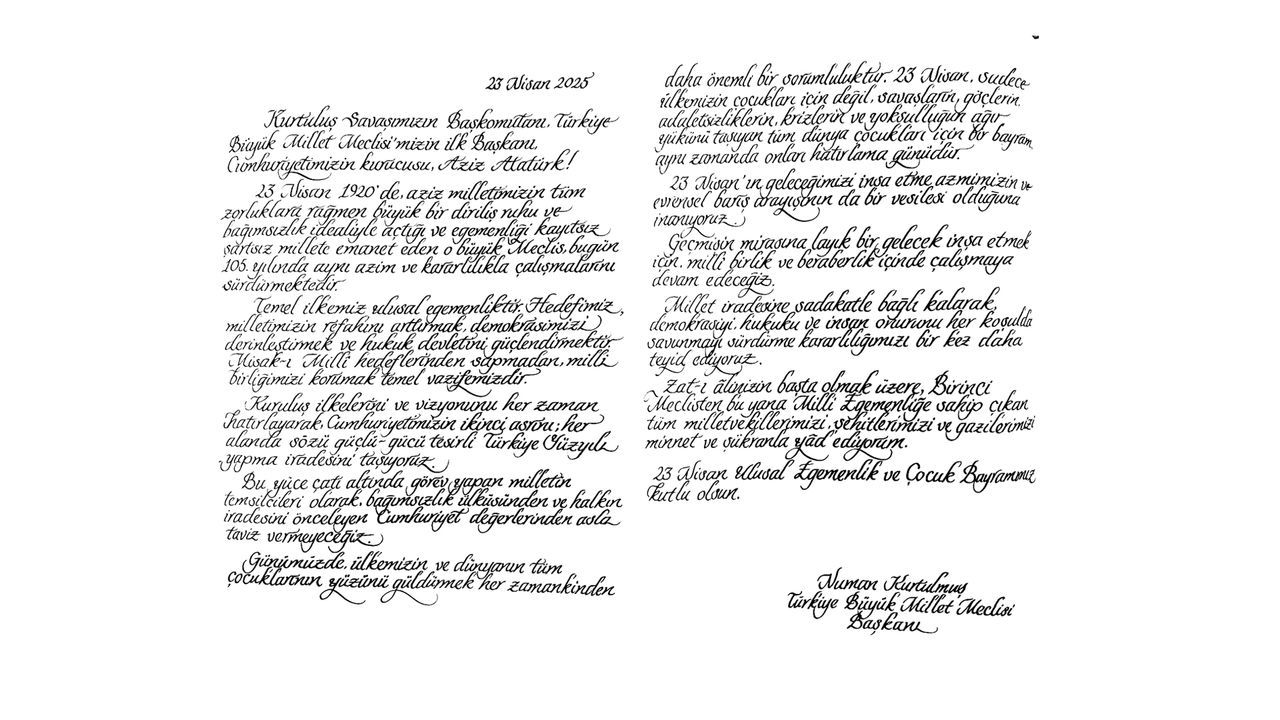 23 Nisan 2025
Kurtuluş Savaşımızın Başkomutanı, Türkiye
Büyük Millet Meclisi'mizin ilk Başkanı,
Cumhuriyetimizin kurucusu, Aziz Atatürk!
23 Nisan 1920'de, aziz milletimizin tüm
zorluklara rağmen büyük bir diriliş ruhu ve
bağımsızlık idealiyle açtığı ve egemenliği kayıtsız
şartsız millete emanet eden o büyük Meclis, bugün
105. yılında aynı azim ve kararlılıkla çalışmalarını
sürdürmektedir.
Temel ilkemiz ulusal egemenliktir. Hedefimiz,
milletimizin refahını artırmak, demokrasimizi
derinleştirmek ve hukuk devletini güçlendirmektir.
Misak-ı Milli hedeflerinden sapmadan, milli
birliğimizi korumak temel vazifemizdir.
Kuruluş ilkelerini ve vizyonunu her zaman
hatırlayarak, Cumhuriyetimizin ikinci asrını; her
alanda sözü güçlü-gücü tesirli Türkiye Yüzyılı
yapma iradesini taşıyoruz.
Bu yüce çatı altında görev yapan milletin
temsilcileri olarak, bağımsızlık ülküsünden ve halkın
iradesini önceleyen Cumhuriyet değerlerinden asla
taviz vermeyeceğiz.
Günümüzde, ülkemizin ve dünyanın tüm
çocuklarının yüzünü güldürmek her zamankinden
daha önemli bir sorumluluktur. 23 Nisan, sadece
ülkemizin çocukları için değil, savaşların, göçlerin,
adaletsizliklerin, krizlerin ve yoksulluğun ağır
yükünü taşıyan tüm dünya çocukları için bir bayram,
aynı zamanda onları hatırlama günüdür.
23 Nisan'ın geleceğimizi inşa etme azmimizin ve
evrensel barış arayışının da bir vesilesi olduğuna
inanıyoruz.
Geçmişin mirasına layık bir gelecek inşa etmek
için, milli birlik ve beraberlik içinde çalışmaya
devam edeceğiz.
Millet iradesine sadakatle bağlı kalarak,
demokrasiyi, hukuku ve insan onurunu her koşulda
savunmayı sürdürme kararlılığımızı bir kez daha
teyid ediyoruz.
Zat-ı âlinizin başta olmak üzere, Birinci
Meclisten bu yana Milli Egemenliğe sahip çıkan
tüm milletvekillerimizi, şehitlerimizi ve gazilerimizi
minnet ve şükranla yâd ediyorum.
23 Nisan Ulusal Egemenlik ve Çocuk Bayramımız
kutlu olsun.
Numan Kurtulmuş
Türkiye Büyük Millet Meclisi
Başkanı